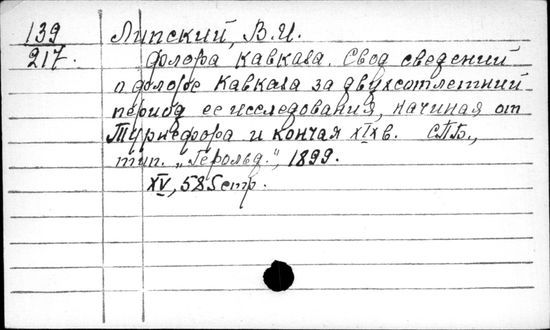 139 Липский, В.И.
217. Флора Кавказа. Свод сведений
о флоре Кавказа за двухсотлетний
период ее исследования, начиная от
Турнефора и кончая XIX в. СПБ.,
тип. „Герольд", 1899.
XV, 585 стр.